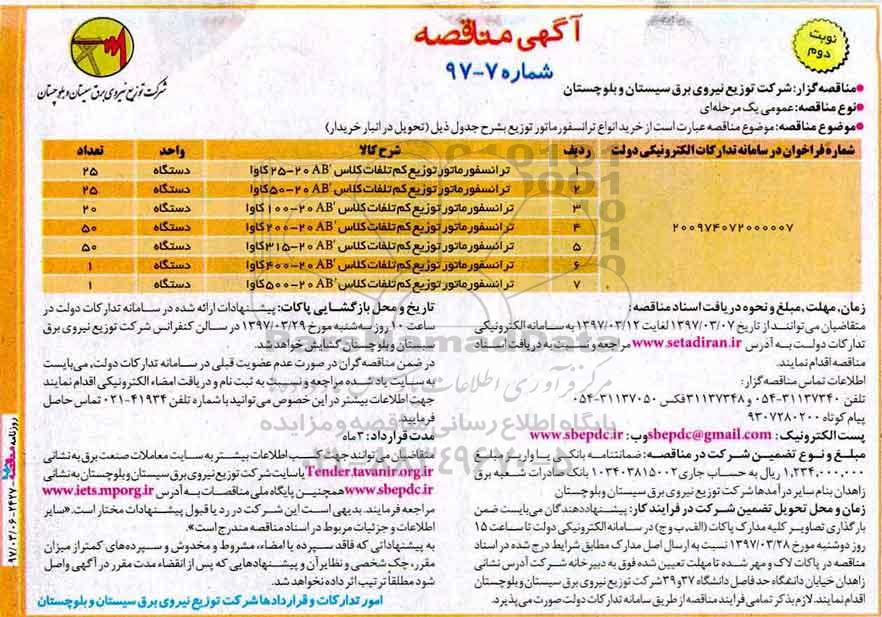 آگهی مناقصه
شماره ۷-۹۷
نوبت دوم
شرکت توزیع نیروی برق سیستان و بلوچستان
●مناقصه گزار: شرکت توزیع نیروی برق سیستان و بلوچستان
●نوع مناقصه: عمومی یک مرحله‌ای
●موضوع مناقصه: موضوع مناقصه عبارت است از خرید انواع ترانسفورماتور توزیع بشرح جدول ذیل (تحویل در انبار خریدار)
شماره فراخوان در سامانه تدارکات الکترونیکی دولت ردیف شرح کالا واحد تعداد
۲۰۰۹۷۴۰۷۲۰۰۰۰۰۷
۱ ترانسفورماتور توزیع کم تلفات کلاس AB' ۲۰-۲۵کاوا دستگاه ۲۵
۲ ترانسفورماتور توزیع کم تلفات کلاس AB' ۲۰-۵۰کاوا دستگاه ۲۵
۳ ترانسفورماتور توزیع کم تلفات کلاس AB' ۲۰-۱۰۰کاوا دستگاه ۲۰
۴ ترانسفورماتور توزیع کم تلفات کلاس AB' ۲۰-۲۰۰کاوا دستگاه ۵۰
۵ ترانسفورماتور توزیع کم تلفات کلاس AB' ۲۰-۳۱۵کاوا دستگاه ۵۰
۶ ترانسفورماتور توزیع کم تلفات کلاس AB' ۲۰-۴۰۰کاوا دستگاه ۱
۷ ترانسفورماتور توزیع کم تلفات کلاس AB' ۲۰-۵۰۰کاوا دستگاه ۱
زمان، مهلت، مبلغ و نحوه دریافت اسناد مناقصه:
متقاضیان می‌توانند از تاریخ ۱۳۹۷/۰۳/۰۷ لغایت ۱۳۹۷/۰۳/۱۲ به سامانه الکترونیکی
تدارکات دولت به آدرس www.setadiran.ir مراجعه و نسبت به دریافت اسناد
مناقصه اقدام نمایند.
اطلاعات تماس مناقصه گزار:
تلفن ۳۱۱۳۷۳۴۰-۰۵۴ و ۳۱۱۳۷۳۴۸ فکس ۳۱۱۳۷۰۵۰-۰۵۴
پیام کوتاه ۹۳۰۷۲۸۰۲۰۰
پست الکترونیک: sbepdc@gmail.com وب: www.sbepdc.ir
مبلغ و نوع تضمین شرکت در مناقصه: ضمانتنامه بانکی یا واریز مبلغ
۱,۲۳۴,۰۰۰,۰۰۰ ریال به حساب جاری ۰۱۰۳۴۰۳۸۱۵۰۰۲ بانک صادرات شعبه برق
زاهدان بنام سایر درآمدها شرکت توزیع نیروی برق سیستان و بلوچستان
زمان و محل تحویل تضمین شرکت در فرایند کار: پیشنهاددهندگان می‌بایست ضمن
بارگذاری تصاویر کلیه مدارک پاکات (الف، ب و ج) در سامانه الکترونیکی دولت تا ساعت ۱۵
روز دوشنبه مورخ ۱۳۹۷/۰۳/۲۸ نسبت به ارسال اصل مدارک مطابق شرایط درج شده در اسناد
مناقصه در پاکات لاک و مهر شده تا مهلت تعیین شده فوق به دبیرخانه شرکت آدرس نشانی
زاهدان خیابان دانشگاه حدفاصل دانشگاه ۳۷ و ۳۹ شرکت توزیع نیروی برق سیستان و بلوچستان
اقدام نمایند. لازم بذکر تمامی فرایند مناقصه از طریق سامانه تدارکات دولت صورت می‌پذیرد.
تاریخ و محل بازگشایی پاکات: پیشنهادات ارائه شده در سامانه تدارکات دولت در
ساعت ۱۰ روز سه‌شنبه مورخ ۱۳۹۷/۰۳/۲۹ در سالن کنفرانس شرکت توزیع نیروی برق
سیستان و بلوچستان گشایش خواهد شد.
در ضمن مناقصه گران در صورت عدم عضویت قبلی در سامانه تدارکات دولت، می‌بایست
به سایت یاد شده مراجعه و نسبت به ثبت نام و دریافت امضاء الکترونیکی اقدام نمایند
جهت اطلاعات بیشتر در این خصوص می‌توانید با شماره تلفن ۴۱۹۳۴-۰۲۱ تماس حاصل
فرمایید.
مدت قرارداد: ۳ ماه
متقاضیان می‌توانند جهت کسب اطلاعات بیشتر به سایت معاملات صنعت برق به نشانی
Tender.tavanir.org.ir یا سایت شرکت توزیع نیروی برق سیستان و بلوچستان به نشانی
www.sbepdc.ir همچنین پایگاه ملی مناقصات به آدرس www.iets.mporg.ir
مراجعه فرمایند. بدیهی است این شرکت در رد یا قبول پیشنهادات مختار است. «سایر
اطلاعات و جزئیات مربوط در اسناد مناقصه مندرج است».
به پیشنهاداتی که فاقد سپرده یا امضاء، مشروط و مخدوش و سپرده‌های کمتر از میزان
مقرر، چک شخصی و نظایر آن و پیشنهادهایی که پس از انقضاء مدت مقرر در آگهی واصل
شود مطلقا ترتیب اثر داده نخواهد شد.
امور تدارکات و قراردادها شرکت توزیع نیروی برق سیستان و بلوچستان
روزنامه مناقصه - ۲۴۲۷ - ۹۷/۰۳/۰۶
ParsNamadData
مرکز فرآوری اطلاعات
پایگاه اطلاع رسانی مناقصه و مزایده